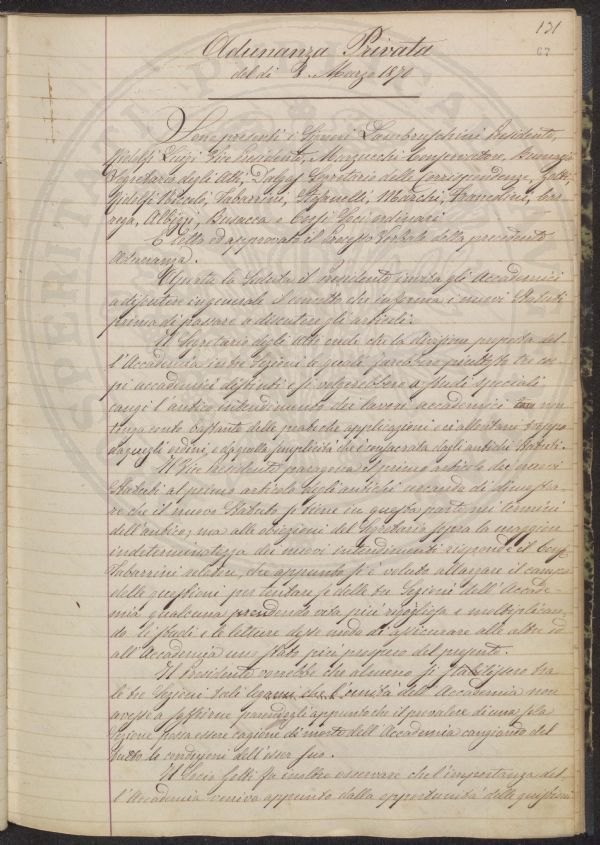 131
67
Adunanza Privata
del dì 3. Marzo 1870
Sono presenti i Signori Lambruschini Presidente,
Ridolfi Luigi Vice Presidente, Marzucchi Conservatore, Buonazia
Segretario degli Atti, Dalgas Segretario delle Corrispondenze, Gotti,
Ridolfi Niccolò, Tabarrini, Stefanelli, Marchi, Franceschini, Car
rega, Albizzi, Busacca e Corsi Soci ordinari
È letto ed approvato il Processo Verbale della precedente
Adunanza.
Aperta la Seduta il Presidente invita gli Accademici
a disputare in generale il concetto che informa i nuovi Statuti
prima di passare a discutere gli articoli.
Il Segretario degli Atti crede che la divisione proposta del-
l'Accademia in tre Sezioni le quali sarebbero piuttosto tre cor
pi accademici distinti e si volgerebbero a studi speciali
cangi l'antico intendimento dei lavori accademici non
tenga conto bastante delle pratiche applicazioni e ci allontani troppo
da quegli ordini, e da quella semplicità che è consacrata dagli antichi Statuti.
Il Vice Presidente paragona il primo articolo dei nuovi
Statuti al primo articolo degli antichi cercando di dimostra
re che il nuovo Statuto si tiene in questa parte nei termini
dell'antico; ma alle obiezioni del Segretario sopra la maggiore
indeterminatezza dei nuovi intendimenti risponde il Cons.
Tabarrini relatore, che appunto si è voluto allargare il campo
delle questioni per tentare se delle tre Sezioni dell'Accade-
mia qualcuna prendendo vita più rigogliosa e moltiplican
do li studi e le letture desse modo di assicurare alle altre ed
all'Accademia uno stato più prospero del presente.
Il Presidente vorrebbe che almeno si stabilissero tra
le tre Sezioni tali legami che l'unità dell'Accademia non
avesse a soffrirne parendogli appunto che il prevalere di una sola
Sezione possa essere cagione di morte dell'Accademia cangiando del
tutto le condizioni dell'esser suo.
Il Socio Gotti fa inoltre osservare che l'importanza del-
l'Accademia veniva appunto dalla opportunità delle quistioni